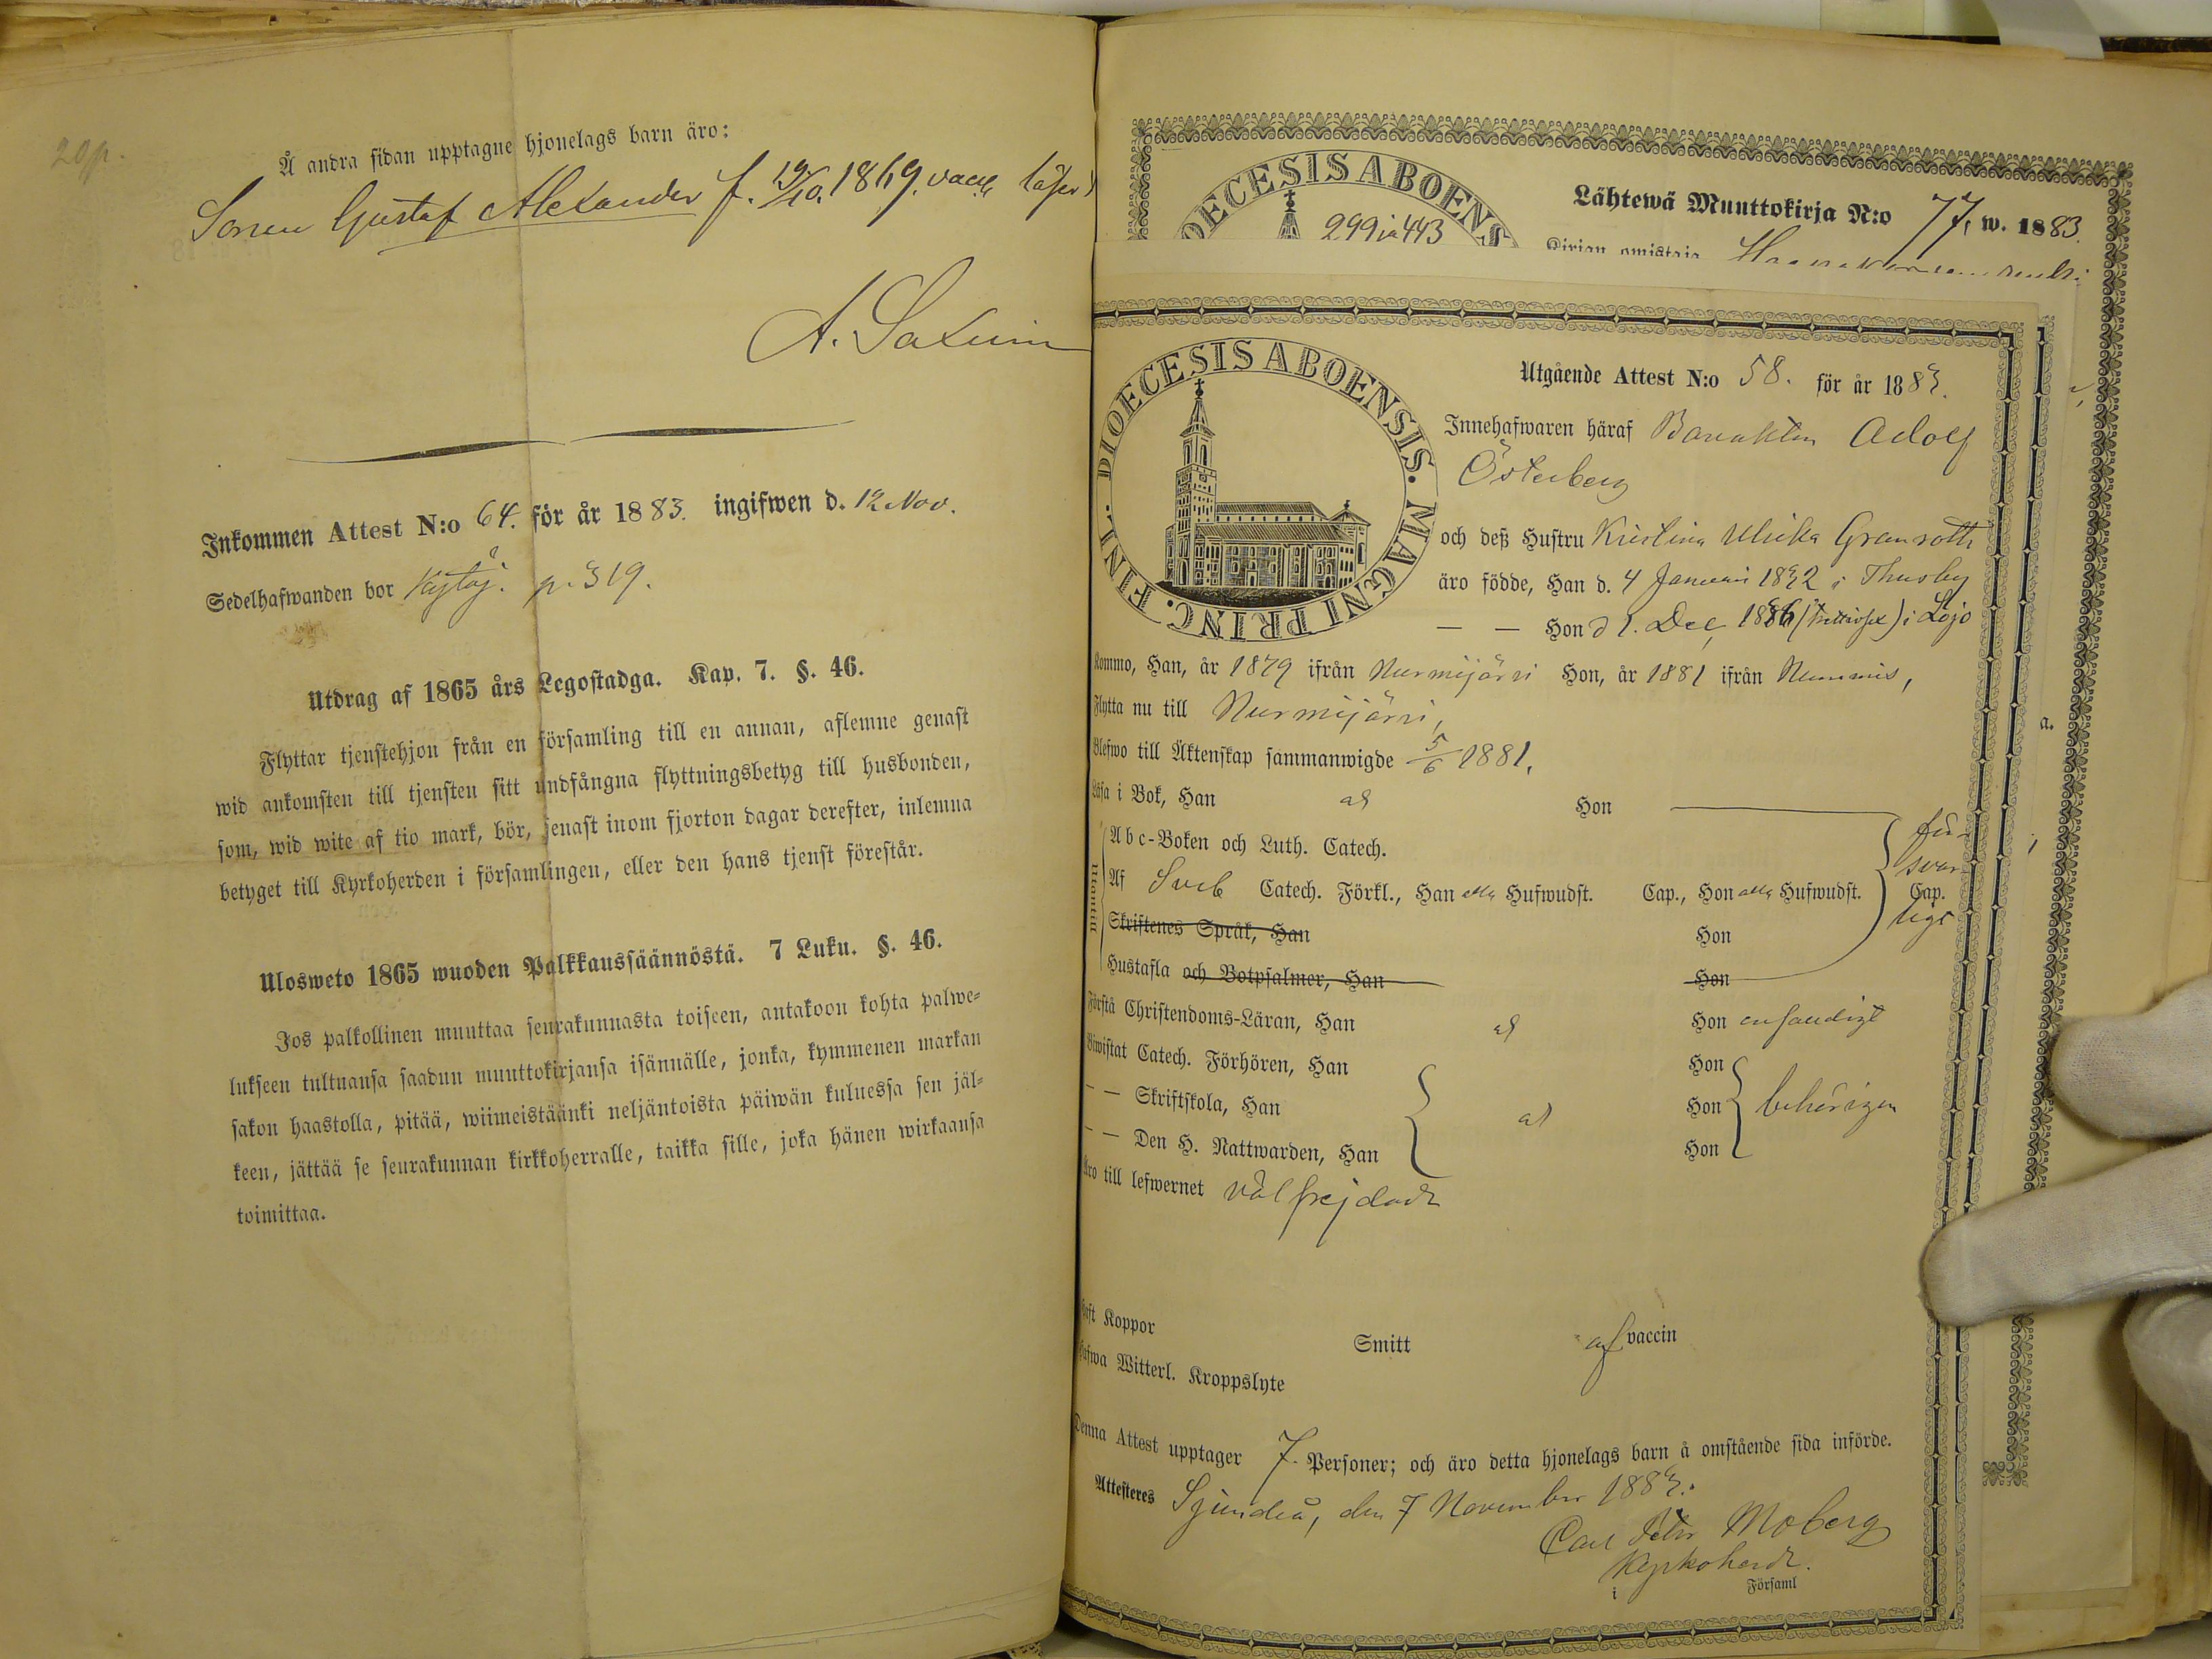 20p.
Å andra sidan upptagne hjonelags barn äro:
Sonen Gustaf Alexander f. 19/10. 1869. vacc.
Inkommen Attest N:o 64. för år 1883. ingifwen d. 12 Nov.
Sedelhafwanden bor p. 319.
Utdrag af 1865 års Legostadga. Kap. 7. §. 46.
Flyttar tjenstehjon från en församling till en annan, aflemne genast
wid ankomsten till tjensten sitt undfångna flyttningsbetyg till husbonden,
som, wid wite af tio mark, bör, senast inom fjorton dagar derefter, inlemna
betyget till Kyrkoherden i församlingen, eller den hans tjenst förestår.
Ulosweto 1865 wuoden Palkkaussäännöstä. 7 Luku. §. 46.
Jos palkollinen muuttaa seurakunnasta toiseen, antakoon kohta palwe=
lukseen tultuansa saadun muuttokirjansa isännälle, jonka, kymmenen markan
sakon haastolla, pitää, wiimeistäänki neljäntoista päiwän kuluessa sen jäl=
keen, jättää se seurakunnan kirkkoherralle, taikka sille, joka hänen wirkaansa
toimittaa.
OECESIS ABOENS
299 ja 443
Lähtewä Muuttokirja N:o 77, w. 1883.
Kirjan omistaja
DIOECESIS ABOENSIS. MAGNI PRINC. FINL.
Utgående Attest N:o 58. för år 1883.
Innehafwaren häraf Adolf
Österberg
och deß Hustru Kristina Ulrika Granroth
äro födde, Han d. 4 Januari 1832 i Thusby
— — Hon d 1. Dec, 1836 (trettiosex) i Lojo
Kommo, Han, år 1879 ifrån Nurmijärvi Hon, år 1881 ifrån Nummis,
Flytta nu till Nurmijärvi,
Blefwo till Äktenskap sammanwigde 5/6 1881.
Läsa i Bok, Han Hon
Abc-Boken och Luth. Catech.
Utantill
Af Sveb Catech. Förkl., Han alla Hufwudst. Cap., Hon alla Hufwudst. Cap.
för-
svar
ligt
Skriftenes Språk, Han Hon
Hustafla och Botpsalmer, Han Hon
Förstå Christendoms-Läran, Han Hon enfaldigt
Biwistat Catech. Förhören, Han Hon
— — Skriftskola, Han Hon behörigen
— — Den H. Nattwarden, Han Hon
Äro till lefwernet välfrejdade
Haft Koppor Smitt af vaccin
Hafwa Witterl. Kroppslyte
Denna Attest upptager 7. Personer; och äro detta hjonelags barn å omstående sida införde.
Attesteres Sjundeå, den 7 November 1883.
Carl Petter Moberg
Kyrkoherde.
i Församl